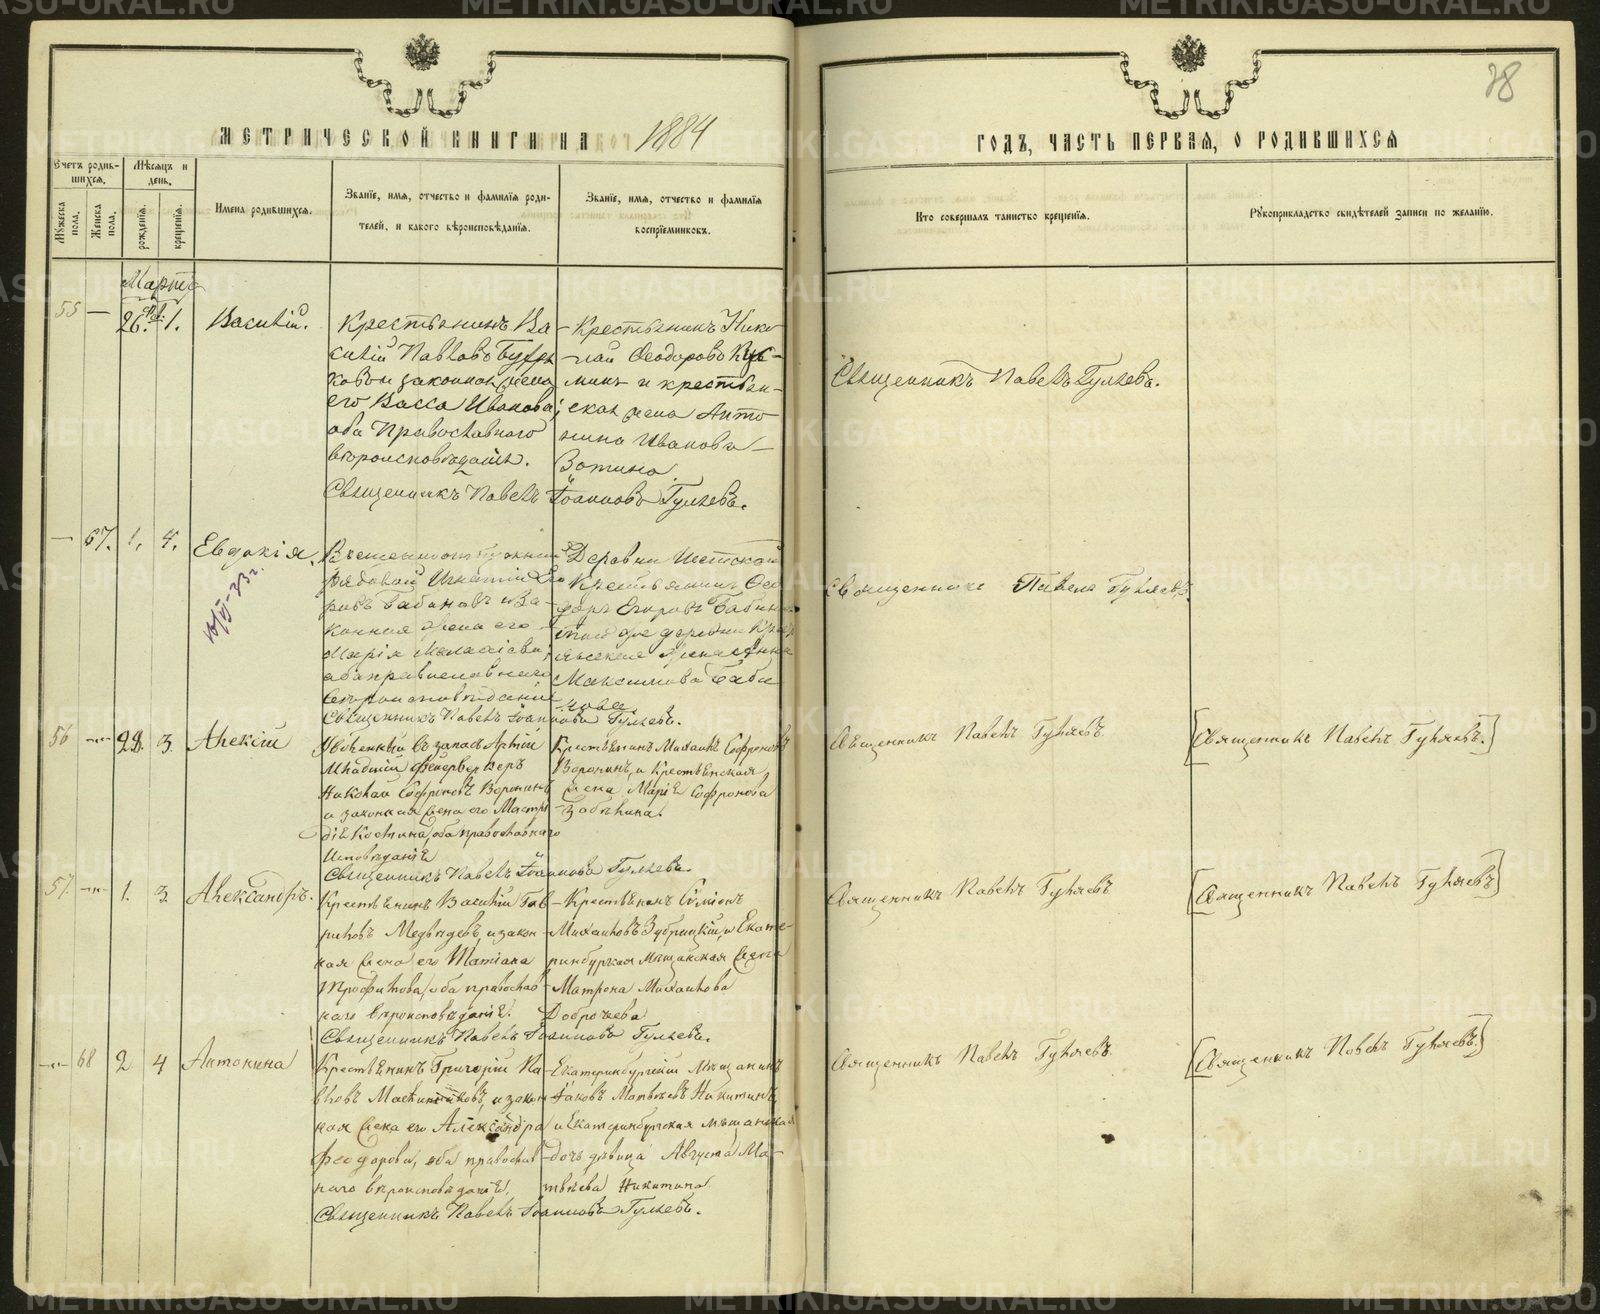 МЕТРИЧЕСКОЙ КНИГИ НА 1884
ГОДЪ, ЧАСТЬ ПЕРВАЯ, О РОДИВШИХСЯ
78
Счетъ родив-
шихся.
Мѣсяцъ и
день.
Мужеска
пола.
Женска
пола.
рожденія.
крещенія.
Имена родившихся.
Званіе, имя, отчество и фамилія роди-
телей, и какого вѣроисповѣданія.
Званіе, имя, отчество и фамилія
воспріемниковъ.
Кто совершалъ таинство крещенія.
Рукоприкладство свидѣтелей записи по желанію.
Мартъ
55 — 26. 1. Василій.
Крестьянинъ Ва-
силій Павловъ
законная жена
его Васса Иванова;
оба Православнаго
вѣроисповѣданія.
Крестьянинъ Нико-
лай Ѳеодоровъ
минъ и крестьян-
ская жена Анто-
нина Иванова
Зотина.
Священникъ Павелъ Іоанновъ Гуляевъ.
Священникъ Павелъ Гуляевъ.
— 67. 1. 4. Евдокія.
рядовой Игнатій Его-
ровъ Бабиновъ и за-
конная жена его
Марія
оба православнаго
вѣроисповѣданія
Деревни
Крестьянинъ Ѳео-
доръ Егоровъ Бабинъ
той же деревни
Максимова Баби-
нова.
Священникъ Павелъ Іоанновъ Гуляевъ.
Священникъ Павелъ Гуляевъ
56 — 28. 3. Алексій
Уволенный въ запасъ Арміи
Младшій Фейерверкеръ
Николай Софроновъ Воронинъ
и законная жена его
Костина, оба православнаго
Исповѣданія
Крестьянинъ Михаилъ Софроновъ
Воронинъ, и Крестьянская
жена Марія Софронова
Забѣлина.
Священникъ Павелъ Іоанновъ Гуляевъ.
Священникъ Павелъ Гуляевъ
[Священникъ Павелъ Гуляевъ.]
57 — 1. 3. Александръ.
Крестьянинъ Василій Гав-
риловъ Медвѣдевъ, и закон-
ная жена его Татіана
Трофимова, оба православ-
наго вѣроисповѣданія.
Крестьянинъ Симіонъ
Михаиловъ Зубрицкій, и Екате-
ринбургская Мѣщанская жена
Матрона Михаилова
Священникъ Павелъ Іоанновъ Гуляевъ.
Священникъ Павелъ Гуляевъ
[Священникъ Павелъ Гуляевъ]
— 68 2 4 Антонина
Крестьянинъ Григорій Па-
вловъ и закон-
ная жена его Александра
Феодорова, оба православ-
наго вѣроисповѣданія.
Екатеринбургскій Мѣщанинъ
Іаковъ Матвѣевъ Никитинъ
и Екатеринбургская мѣщанская
дочь дѣвица Августа Ма-
твѣева Никитина
Священникъ Павелъ Іоанновъ Гуляевъ.
Священникъ Павелъ Гуляевъ
[Священникъ Павелъ Гуляевъ.]
METRIKI.GASO-URAL.RU